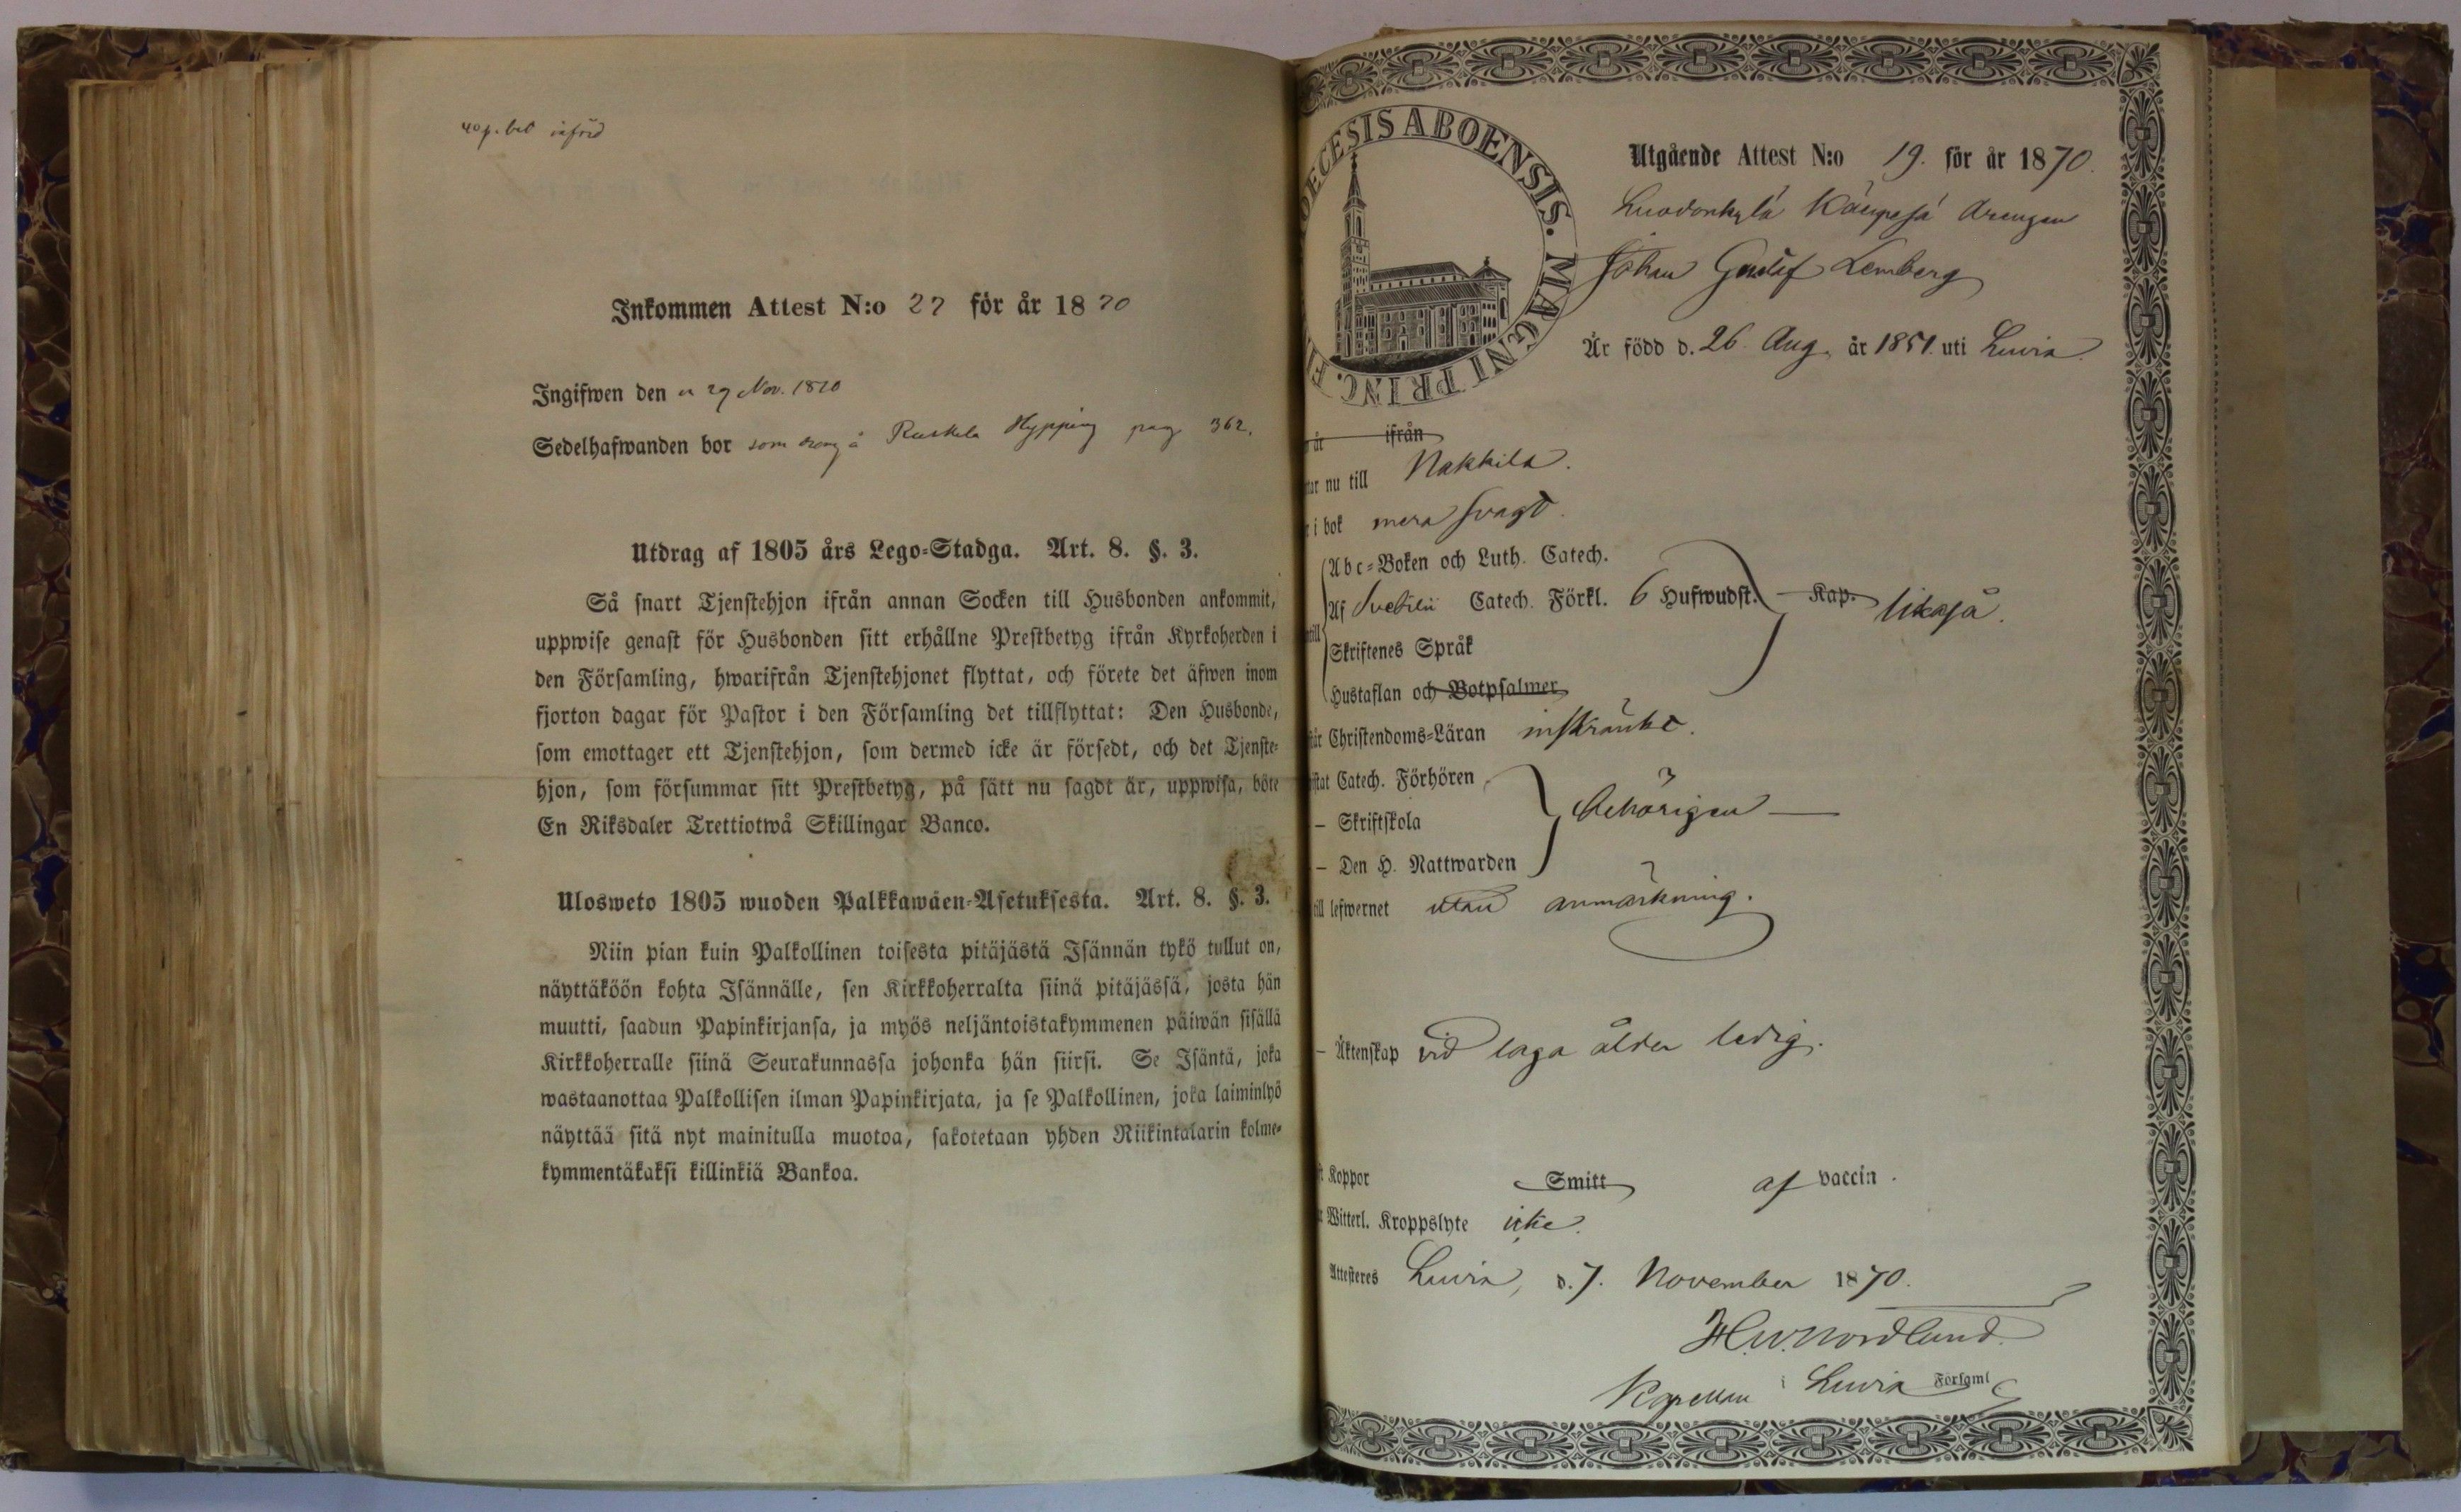 40 p. bet införd
Inkommen Attest N:o 27 för år 1870
Ingifwen den 29 Nov. 1870
Sedelhafwanden bor som dreng å Ruskela Hypping pag 362.
Utdrag af 1805 års Lego-Stadga. Art. 8. §. 3.
Så snart Tjenstehjon ifrån annan Socken till Husbonden ankommit,
uppwise genast för Husbonden sitt erhållne Prestbetyg ifrån Kyrkoherden i
den Församling, hwarifrån Tjenstehjonet flyttat, och förete det äfwen inom
fjorton dagar för Pastor i den Församling det tillflyttat: Den Husbonde,
som emottager ett Tjenstehjon, som dermed icke är försedt, och det Tjenste-
hjon, som försummar sitt Prestbetyg, på sätt nu sagdt är, uppwisa, böte
En Riksdaler Trettiotwå Skillingar Banco.
Ulosweto 1805 wuoden Palkkawäen-Asetuksesta. Art. 8. §. 3.
Niin pian kuin Palkollinen toisesta pitäjästä Isännän tykö tullut on,
näyttäköön kohta Isännälle, sen Kirkkoherralta siinä pitäjässä, josta hän
muutti, saadun Papinkirjansa, ja myös neljäntoistakymmenen päiwän sisällä
Kirkkoherralle siinä Seurakunnassa johonka hän siirsi. Se Isäntä, joka
wastaanottaa Palkollisen ilman Papinkirjata, ja se Palkollinen, joka laiminlyö
näyttää sitä nyt mainitulla muotoa, sakotetaan yhden Riikintalarin kolme-
kymmentäkaksi killinkiä Bankoa.
OECESIS ABOENSIS. MAGNI PRINC. FI
Utgående Attest N:o 19. för år 1870.
Luodonkylä Käupesä drengen
Johan Gustaf Lemberg
Är född d. 26 Aug. år 1851 uti Luvia.
år ifrån
nu till Nakkila.
i bok mera svagt.
Abc-Boken och Luth. Catech.
Af Svebilii Catech. Förkl. 6 Hufwudst. Kap. likaså.
Skriftenes Språk
Hustaflan och Botpsalmer
Christendoms-Läran inskränkt.
Catech. Förhören
– Skriftskola behörigen
– Den H. Nattwarden
till lefwernet utan anmärkning.
– Äktenskap vid laga ålder ledig.
Koppor Smitt af vaccin.
Witterl. Kroppslyte icke.
Attesteres Luvia, d. 7. November 1870.
H. W. Nordlund.
Kapellan i Luvia Församl